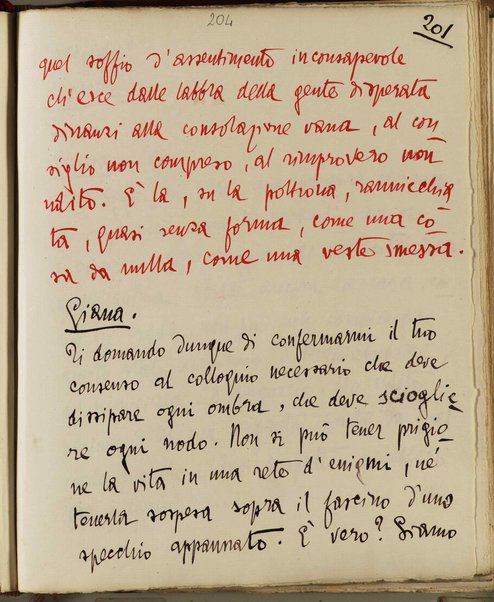 204
201
quel soffio d'assentimento inconsapevole
ch'esce dalle labbra della gente disperata
dinanzi alla consolazione vana, al con
siglio non compreso, al rimprovero non
udito. È la, su la poltrona, rannicchia
ta, quasi senza forma, come una co
sa da nulla, come una veste smessa.
Giana.
Ti domando dunque di confermarmi il tuo
consenso al colloquio necessario che deve
dissipare ogni ombra, che deve scioglie
re ogni nodo. Non si può tener prigio
ne la vita in una rete d'enigmi, né
tenerla sospesa sopra il fascino d'uno
specchio appannato. È vero? Siamo